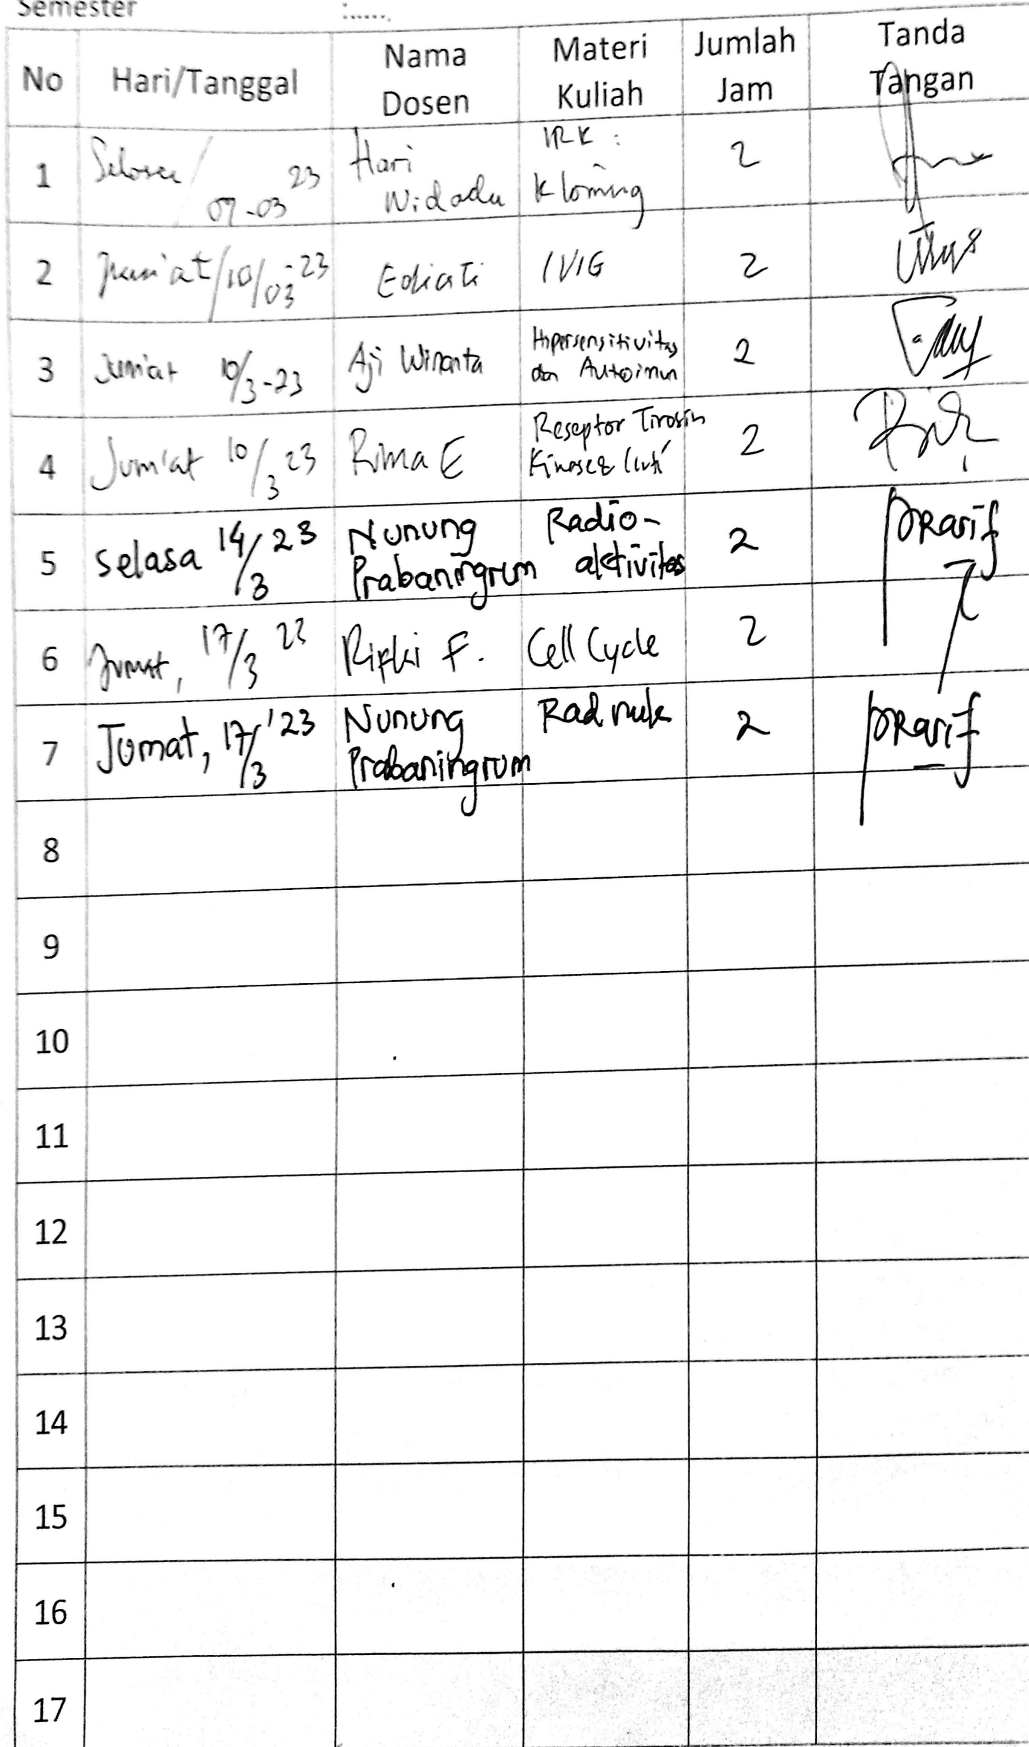 Semester :......
No Hari/Tanggal Nama Dosen Materi Kuliah Jumlah Jam Tanda Tangan
1 Selasa / 07-03 23 Hari Widodo IRK : Kloning 2
2 Jum'at/10/03-23 Ediati IVIG 2
3 Jum'at 10/3-23 Aji Winanta Hipersensitivitas dan Autoimun 2
4 Jum'at 10/3 23 Rima E Reseptor Tirosin Kinase & 2
5 Selasa 14/3 23 Nunung Prabaningrum Radio-aktivitas 2
6 Jumat, 17/3 23 Rifki F. Cell Cycle 2
7 Jumat, 17/3 '23 Nunung Prabaningrum Rad nuk 2
8
9
10
11
12
13
14
15
16
17